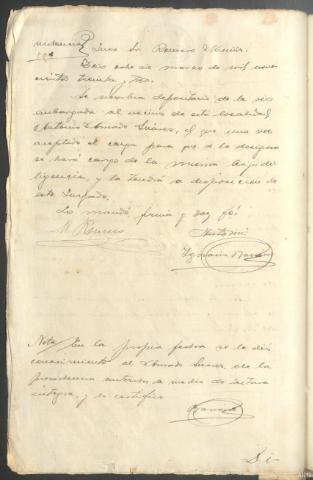 Juez Sr. Romero
Dois ocho de marzo de mil nove
cientos treinta y
Se nombra depositario de la res
embargada al vecino de esta localidad
Antonio Amado Suarez, el que una vez
aceptado el cargo para que se le designa
se hará cargo de la misma
ligencia, y la tendrá a disposición de
este Juzgado.
Lo mandó, firma y doy fé.
M. Romero Ante mi
Ignacio
Nota/ En la propia fecha se le dió
conocimiento al Amado Suarez, de la
providencia anterior a medio de lectura
integra, y lo certifico